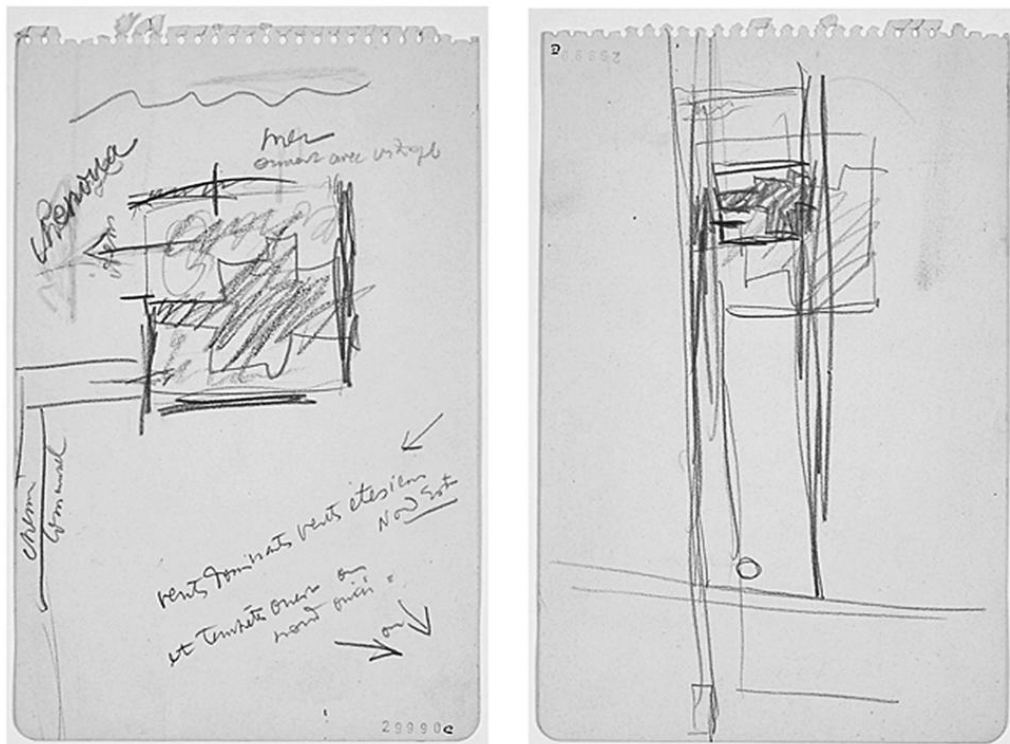 mer
ouvert avec vitrage
Chenoua
chemin
communal
vents dominants vents étésiens
Nord Est
et tempête ouest ou
nord ouest
ou
29990C
D
29990